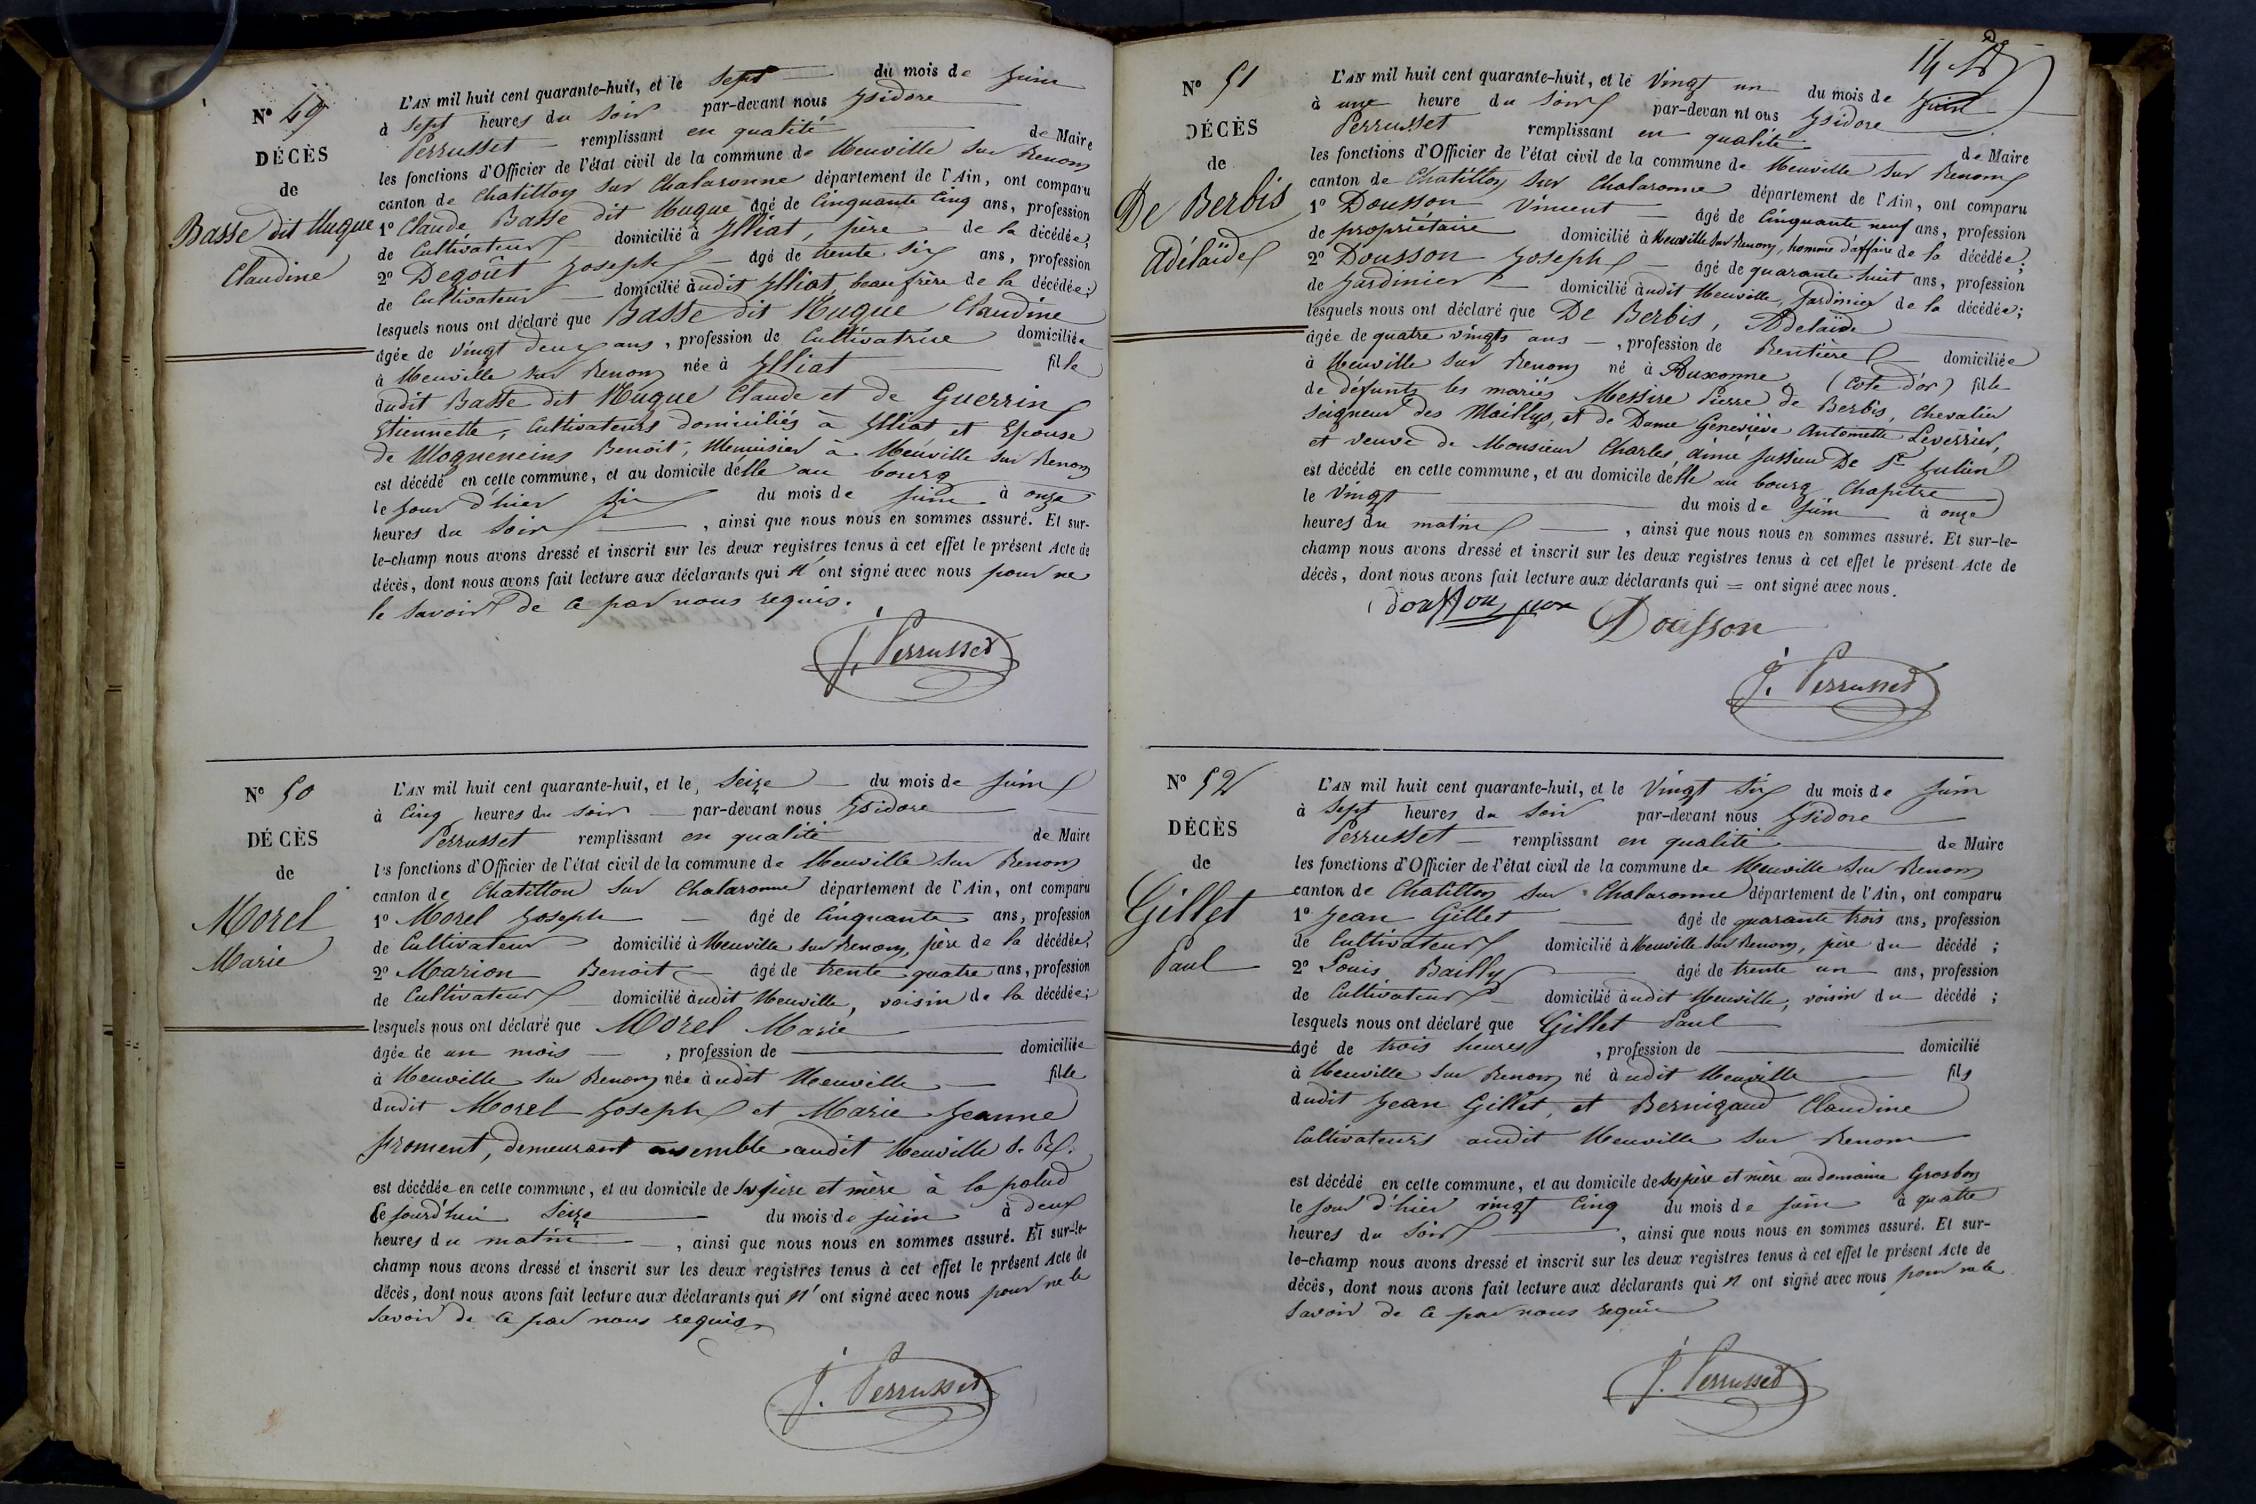 N° 49
DÉCÈS
de
Basse dit Muque
Claudine
L'AN mil huit cent quarante-huit, et le sept du mois de juin
à sept heures du soir par-devant nous Ysidore
Perrusset remplissant en qualité de Maire
les fonctions d'Officier de l'état civil de la commune de Neuville sur Renom
canton de Chatillon sur Chalaronne département de l'Ain, ont comparu
1° Claude Basse dit Muque âgé de Cinquante Cinq ans, profession
de Cultivateur domicilié à Illiat, père de la décédée;
2° Degoût Joseph âgé de trente six ans, profession
de Cultivateur domicilié àudit Illiat, beau frère de la décédée;
lesquels nous ont déclaré que Basse dit Muque Claudine
âgée de vingt deux ans, profession de Cultivatrice domiciliée
à Neuville sur Renom née à Illiat fille
dudit Basse dit Muque Claude et de Guerrin
Etiennette, Cultivateurs domiciliés à Illiat et Epouse
de Mogneneins Benoit, Menuisier à Neuville sur Renom
est décédé en cette commune, et au domicile d'elle au bourg
le jour d'hier six du mois de juin à onze
heures du soir, ainsi que nous nous en sommes assuré. Et sur-
le-champ nous avons dressé et inscrit sur les deux registres tenus à cet effet le présent Acte de
décès, dont nous avons fait lecture aux déclarants qui n'ont signé avec nous pour ne
le savoir de ce par nous requis.
J. Perrusset
N° 50
DÉCÈS
de
Morel
Marie
L'AN mil huit cent quarante-huit, et le, Seize du mois de juin
à Cinq heures du soir par-devant nous Ysidore
Perrusset remplissant en qualité de Maire
les fonctions d'Officier de l'état civil de la commune de Neuville sur Renom
canton de Chatillon sur Chalaronne département de l'Ain, ont comparu
1° Morel Joseph âgé de Cinquante ans, profession
de Cultivateur domicilié à Neuville sur Renom, père de la décédée;
2° Marion Benoit âgé de trente quatre ans, profession
de Cultivateur domicilié àudit Neuville, voisin de la décédée;
lesquels nous ont déclaré que Morel Marie
âgée de un mois, profession de domiciliée
à Neuville sur Renom née àudit Neuville fille
dudit Morel Joseph et Marie Jeanne
froment, demeurant ensemble audit Neuville s. R.
est décédée en cette commune, et au domicile de ses père et mère à la palud
Ce jourd'hui seize du mois de juin à deux
heures du matin, ainsi que nous nous en sommes assuré. Et sur-le-
champ nous avons dressé et inscrit sur les deux registres tenus à cet effet le présent Acte de
décès, dont nous avons fait lecture aux déclarants qui n'ont signé avec nous pour ne le
savoir de ce par nous requis
J. Perrusset
N° 51
DÉCÈS
de
De Berbis
Adélaïde
L'AN mil huit cent quarante-huit, et le Vingt un du mois de juin
à une heure du soir par-devan nt ous Ysidore
Perrusset remplissant en qualité de Maire
les fonctions d'Officier de l'état civil de la commune de Neuville sur Renom
canton de Chatillon sur Chalaronne département de l'Ain, ont comparu
1° Dousson Vincent âgé de Cinquante neuf ans, profession
de propriétaire domicilié à Neuville sur Renom, homme d'affaire de la décédée;
2° Dousson Joseph âgé de quarante huit ans, profession
de Jardinier domicilié àudit Neuville, Jardinier de la décédée;
lesquels nous ont déclaré que De Berbis, Adelaïde
âgée de quatre vingts ans, profession de Rentière domiciliée
à Neuville sur Renom né à Auxonne (Cote d'or) fille
de défunts les mariés Messire Pierre de Berbis, Chevalier
Seigneur des Maillys, et de Dame Geneviève Antoinette Leverrier,
et veuve de Monsieur Charles aimé Jussieu De St Julien
est décédé en cette commune, et au domicile d'elle au bourg Chapitre
le Vingt du mois de juin à onze
heures du matin, ainsi que nous nous en sommes assuré. Et sur-le-
champ nous avons dressé et inscrit sur les deux registres tenus à cet effet le présent Acte de
décès, dont nous avons fait lecture aux déclarants qui = ont signé avec nous.
Dousson
J. Perrusset
N° 52
DÉCÈS
de
Gillet
Paul
L'AN mil huit cent quarante-huit, et le Vingt six du mois de juin
à sept heures du soir par-devant nous Ysidore
Perrusset remplissant en qualité de Maire
les fonctions d'Officier de l'état civil de la commune de Neuville sur Renom
canton de Chatillon sur Chalaronne département de l'Ain, ont comparu
1° Jean Gillet âgé de quarante trois ans, profession
de Cultivateur domicilié à Neuville sur Renom, père du décédé;
2° Louis Bailly âgé de trente un ans, profession
de Cultivateur domicilié àudit Neuville, voisin du décédé;
lesquels nous ont déclaré que Gillet Paul
âgé de trois heures, profession de domicilié
à Neuville sur Renom né àudit Neuville fils
dudit Jean Gillet, et Bernigaud Claudine
Cultivateurs audit Neuville sur Renom
est décédé en cette commune, et au domicile de ses père et mère au domaine Grosbon
le jour d'hier vingt cinq du mois de juin à quatre
heures du soir, ainsi que nous nous en sommes assuré. Et sur-
le-champ nous avons dressé et inscrit sur les deux registres tenus à cet effet le présent Acte de
décès, dont nous avons fait lecture aux déclarants qui n ont signé avec nous pour ne le
savoir de ce par nous requis
J. Perrusset